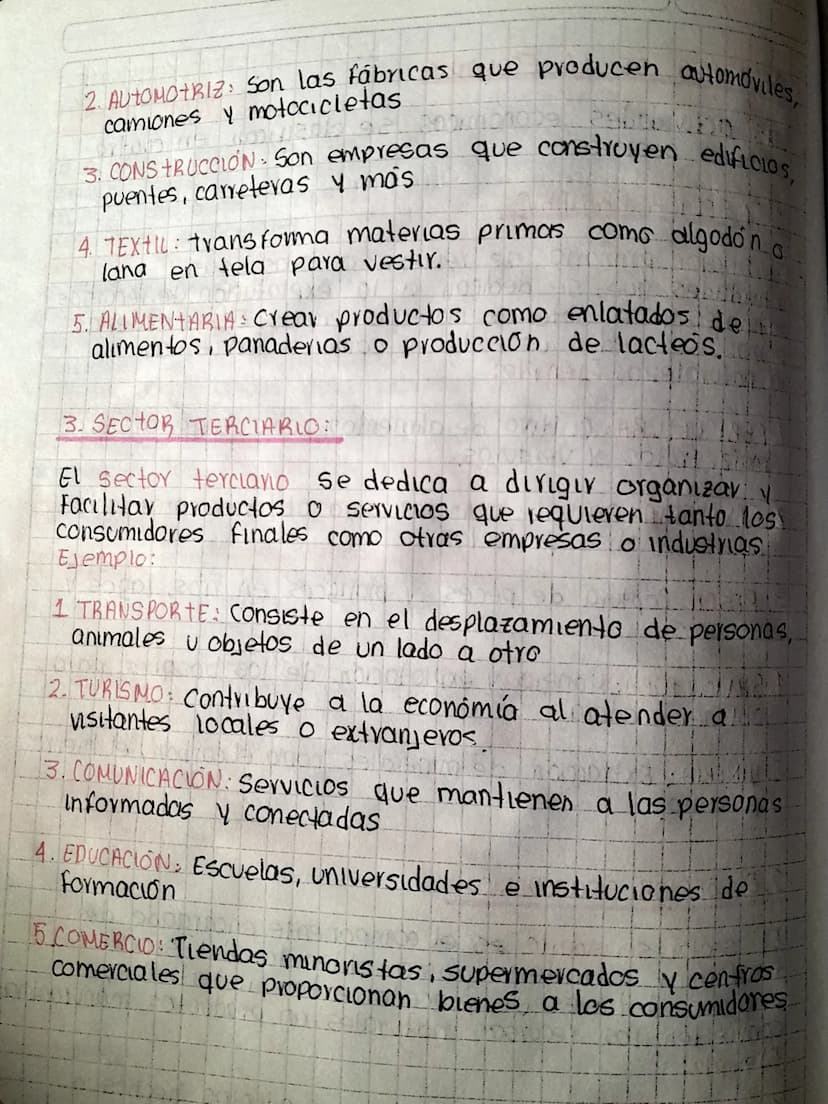 2. AUTOMOTRIZ: Son las fábricas que producen automóviles,
camiones y motocicletas
3. CONSTRUCCIÓN: Son empresas que construyen edificios,
puentes, carreteras y más
4. TEXTIL: transforma materias primas como algodón o
lana en tela para vestir.
5. ALIMENTARIA: Crear productos como enlatados de
alimentos, panaderias o producción de lacteos.
3. SECTOR TERCIARIO:
El sector terciario se dedica a dirigir organizar y
Facilitar productos o servicios que requieren tanto los
consumidores finales como otras empresas o industrias
Ejemplo:
1 TRANSPORTE: Consiste en el desplazamiento de personas,
animales u objetos de un lado a otro
2. TURISMO: Contribuye a la economía al atender a
visitantes locales o extranjeros.
3. COMUNICACIÓN: Servicios que mantienen a las personas
informadas y conectadas
4. EDUCACIÓN: Escuelas, universidades e instituciones de
formación
5 COMERCIO: Tiendas minoristas, supermercados y centros
comerciales que proporcionan bienes a los consumidores